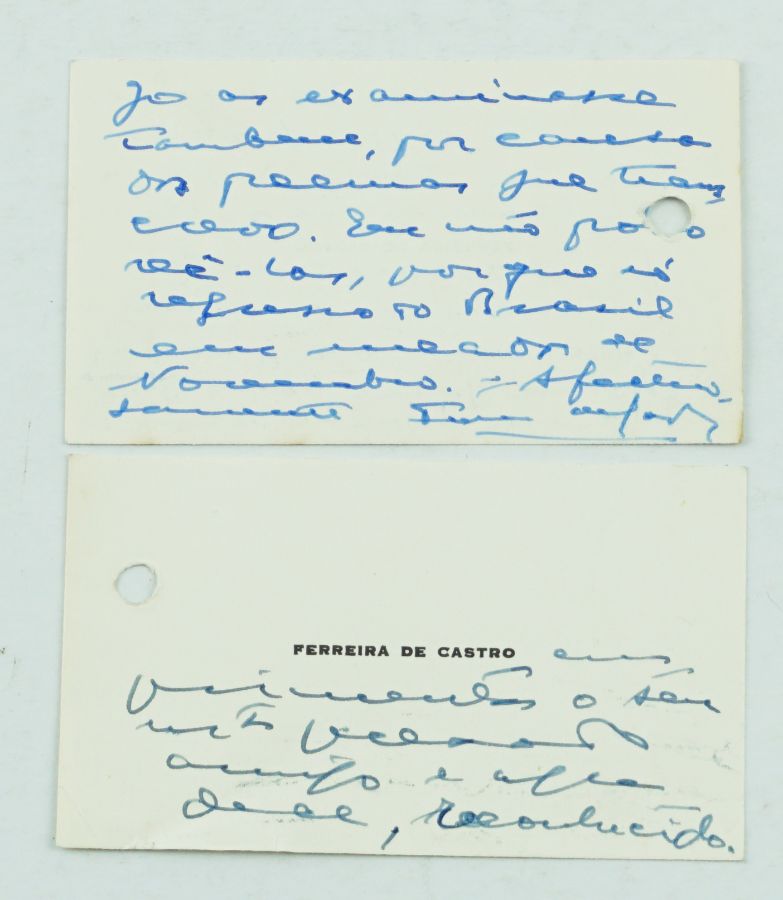 go os examinasse
também, por causa
dos poemas que trans
crevo. Eu não posso
vê-los, porque só
regresso do Brasil
em meados de
Novembro. - Afectuo
samente
FERREIRA DE CASTRO cum
primenta o seu
muito prezado
amigo e agra
dece, reconhecido.